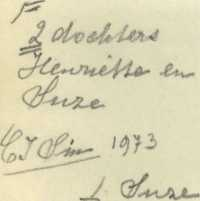 2 dochters
Henriette en
Suze
1973
Suze